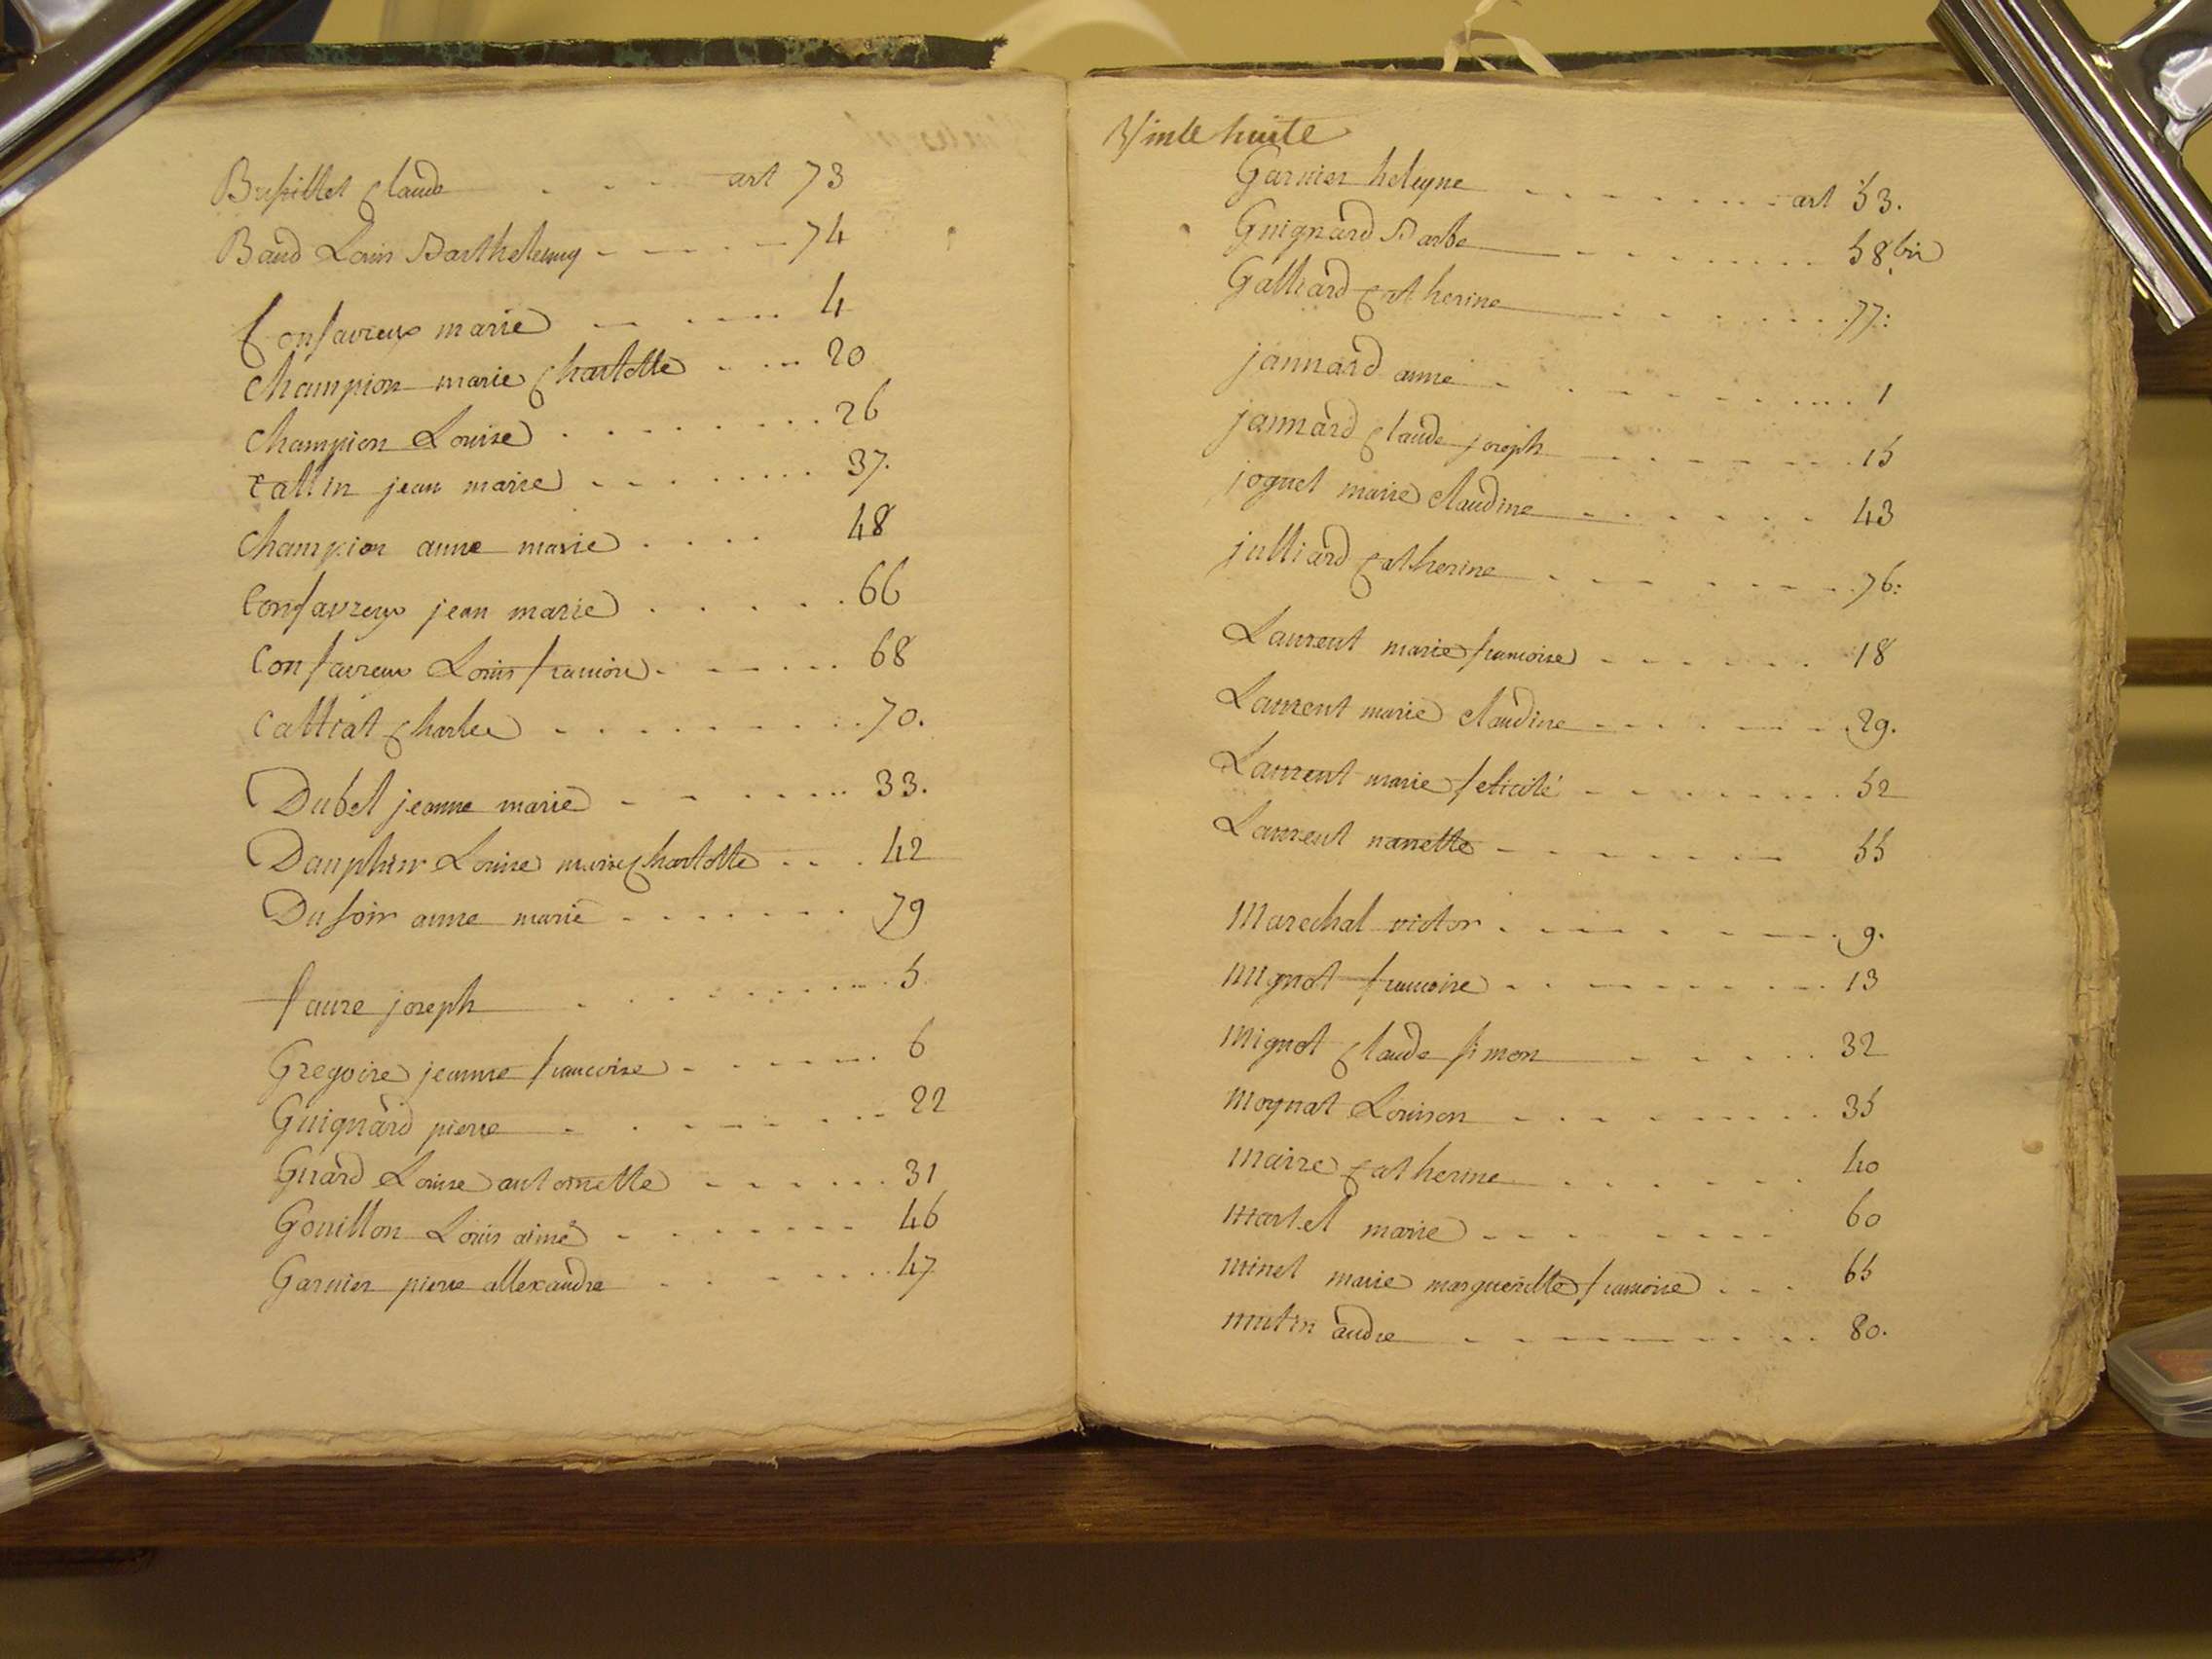 Bussillet Claude - - - art 73
Baud Louis Barthelemy - - - - - 74
Consavreux marie - - .... 4
Champion marie Charlotte . .... 20
Champion Louise . . . . . . . . 26
Cattin jean marie - - . . . . . 37.
Champion anne marie . . . . 48
Consavreux jean marie . . . . . 66
Consavreux Louis francois. - . . . . 68
Cattiat Charles - . . . . - . . 70.
Dubel jeanne marie - - . . . ... 33.
Dauphin Louise marie Charlotte - . . 42
Dusoir anne marie - . . . . . . 79
faure joseph . . . . . . . ... 5
Gregoire jeanne francoise - - . . . . 6
Guignard pierre - . . - . . . - 22
Guard Louise antoinette - - . . . . 31
Gouillon Louis aimé - . . . . - - - 46
Garnier pierre allexandre . . . - . . . 47
Vinte huite
Garnier heleyne - - - - - - . - art 53.
Guignard Barbe - - - - - - . . . 58.bis
Galliard Catherine - . . . . . . 77:
jannard anne - . - - - - .... 1
jannard Claude joseph - - - - - . . 15
joguet marie claudine - - . . - . - 43
julliard Catherine - - - - - - . 76:
Laurent marie francoise - - - . - . . 18
Laurent marie claudine - - . - - - . 29.
Laurent marie felicité - - - - - . . . 52
Laurent nanette - - - - - - - 55
Marechal victor . - - - . - - - . 9.
mignot francoise - . - - - - - - . 13
mignot Claude simon - - . . . . 32
moynat Louison - - - - - - - . 35
maire Catherine . . . . . . 40
martel marie - - - . . - - - - 60
minel marie marguerette francoise . . - 65
mutin andre - - - - - - - - . 80.